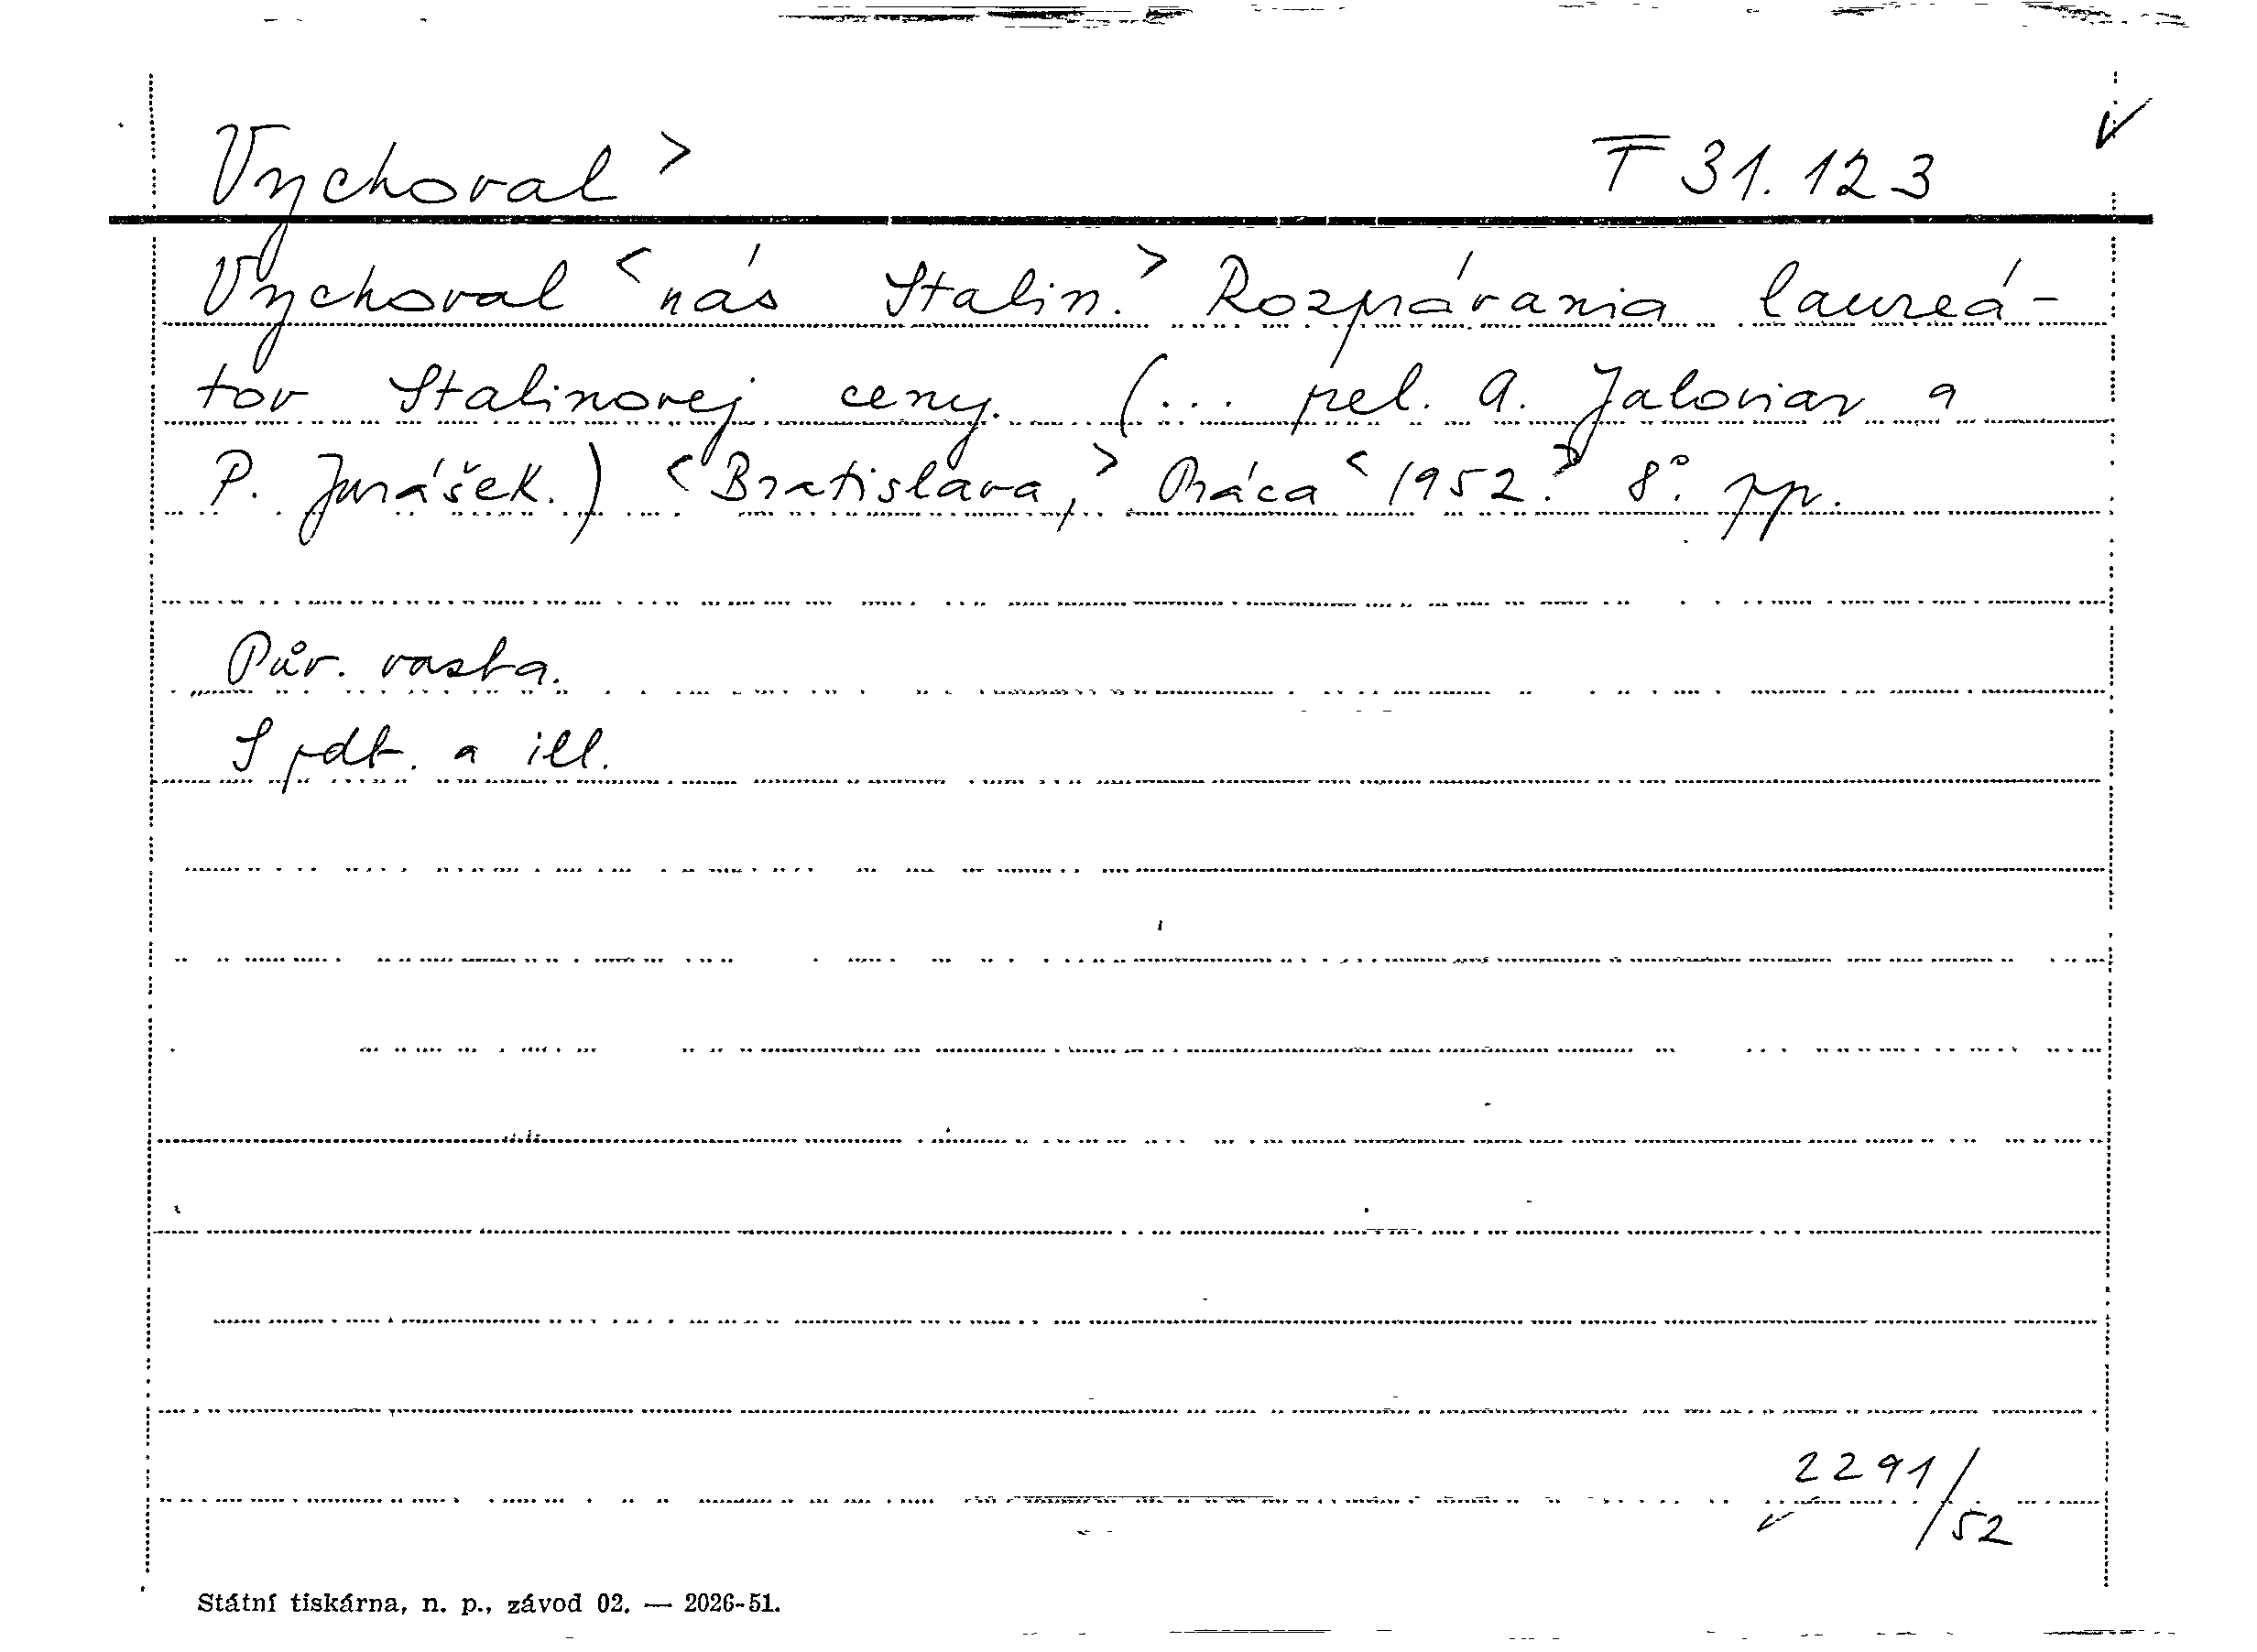 Vychoval > T 31.123
Vychoval < nás Stalin. > Rozprávania laureá-
tov Stalinovej ceny. (... prel. A. Jaloviar a
P. Jurášek.) < Bratislava, > Práca < 1952. > 8°. pp.
Pův. vazba.
S pdt. a ill.
2291/52
Státní tiskárna, n. p., závod 02. — 2026-51.